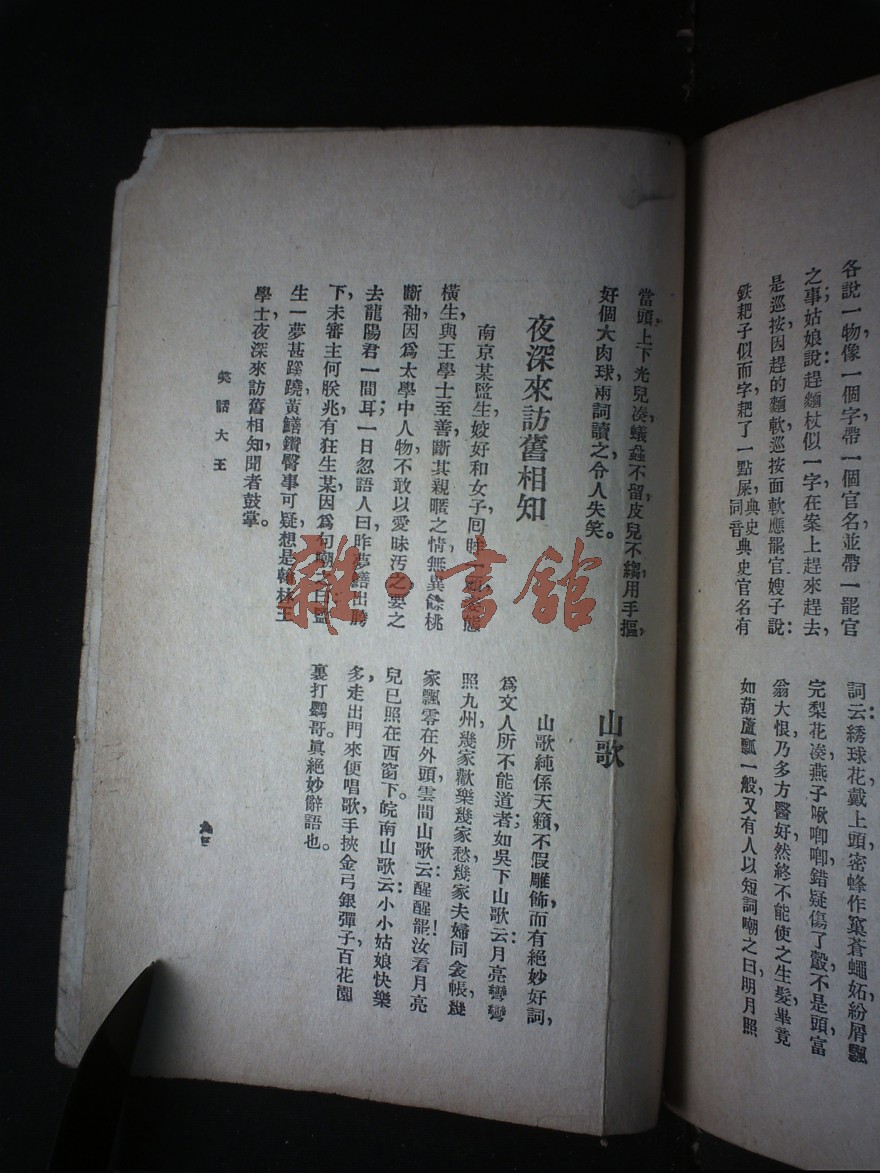 各說一物像一個字帶一個官名並帶一罷官
之事姑娘說趕麵杖似一字在案上趕來趕去,
是巡按因趕的麵軟巡按面軟應罷官嫂子說:
鉄耙子似而字耙了一點屎,典史典史官名有
詞音
詞云:綉球花戴上頭密蜂作窠蒼蠅妬紛屑飄
完梨花凑燕子啾唧唧,錯疑傷了觳不是頭富
翁大恨,乃多方醫好然終不能使之生髮畢竟
如葫蘆瓢一般,又有人以短詞嘲之曰明月照
當頭,上下光兒凑蟻蝨不留,皮兒不縐用手摳,
好個大肉球兩詞讀之,令人失笑。
夜深來訪舊相知
南京某監生,姣好和女子回眸一顧
態
橫生與王學士至善斷其親暱之情無異餘桃
斷袖因爲太學中人物,不敢以愛昧汚之要之
去龍陽君一間耳;一日忽語人曰昨夢鱔出胯
下,未審主何朕兆,有狂生某因爲句嘲之曰監
生一夢甚蹊蹺黃鱔鑽臀事可疑想是翰林王
學士夜深來訪舊相知聞者鼓掌。
笑話大王
山歌
山歌純係天籟,不假雕飾,而有絕妙好詞,
爲文人所不能道者;如吳下山歌云:月亮彎彎
照九州幾家歡樂幾家愁幾家夫婦同衾帳,幾
家飄零在外頭,雲間山歌云:醒醒罷!汝看月亮
兒已照在西窗下。皖南山歌云:小小姑娘快樂
多,走出門來便唱歌手挾金弓銀彈子,百花園
裏打鸚哥。眞絕妙辭語也。